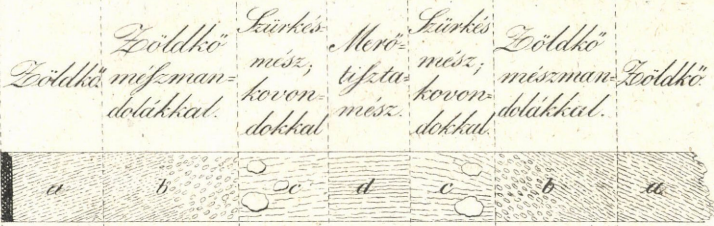 Zöldkő.
Zöldkő
mészman=
dolákkal.
Szürkés
mész;
kovon=
dokkal
Merő=
tiszta=
mész.
Szürkés
mész;
kovon=
dokkal.
Zöldkő
mészman=
dolákkal.
Zöldkő.
a b c d c b a